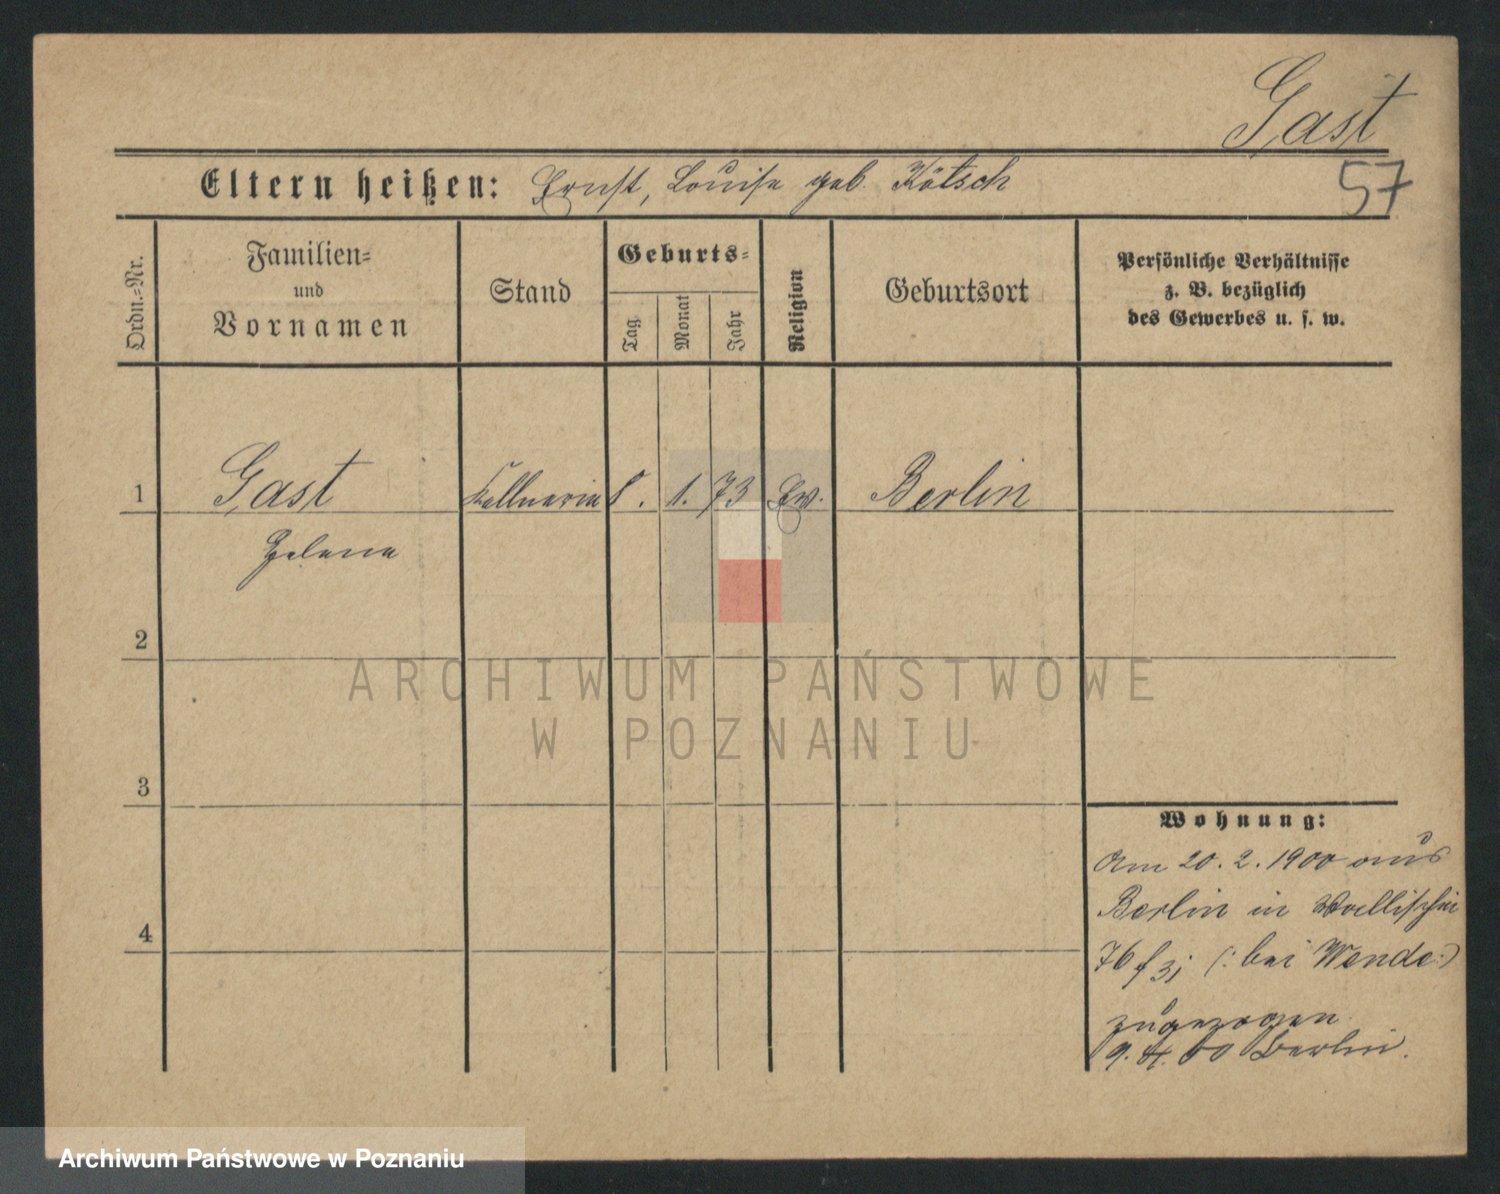 Gast
57
Eltern heißen: Ernst, Louise geb. Kötsch
Ordn.-Nr.
Familien-
und
Vornamen
Stand
Geburts-
Tag
Monat
Jahr
Religion
Geburtsort
Persönliche Verhältnisse
z. B. bezüglich
des Gewerbes u. s. w.
1 Gast Kellnerin 8. 1. 73 Ev. Berlin
Helene
2
3
4
Wohnung:
Am 20. 2. 1900 aus
Berlin in
76 (: bei Wende :)
zugezogen
9. 4. 00 Berlin.
ARCHIWUM PAŃSTWOWE
W POZNANIU
Archiwum Państwowe w Poznaniu